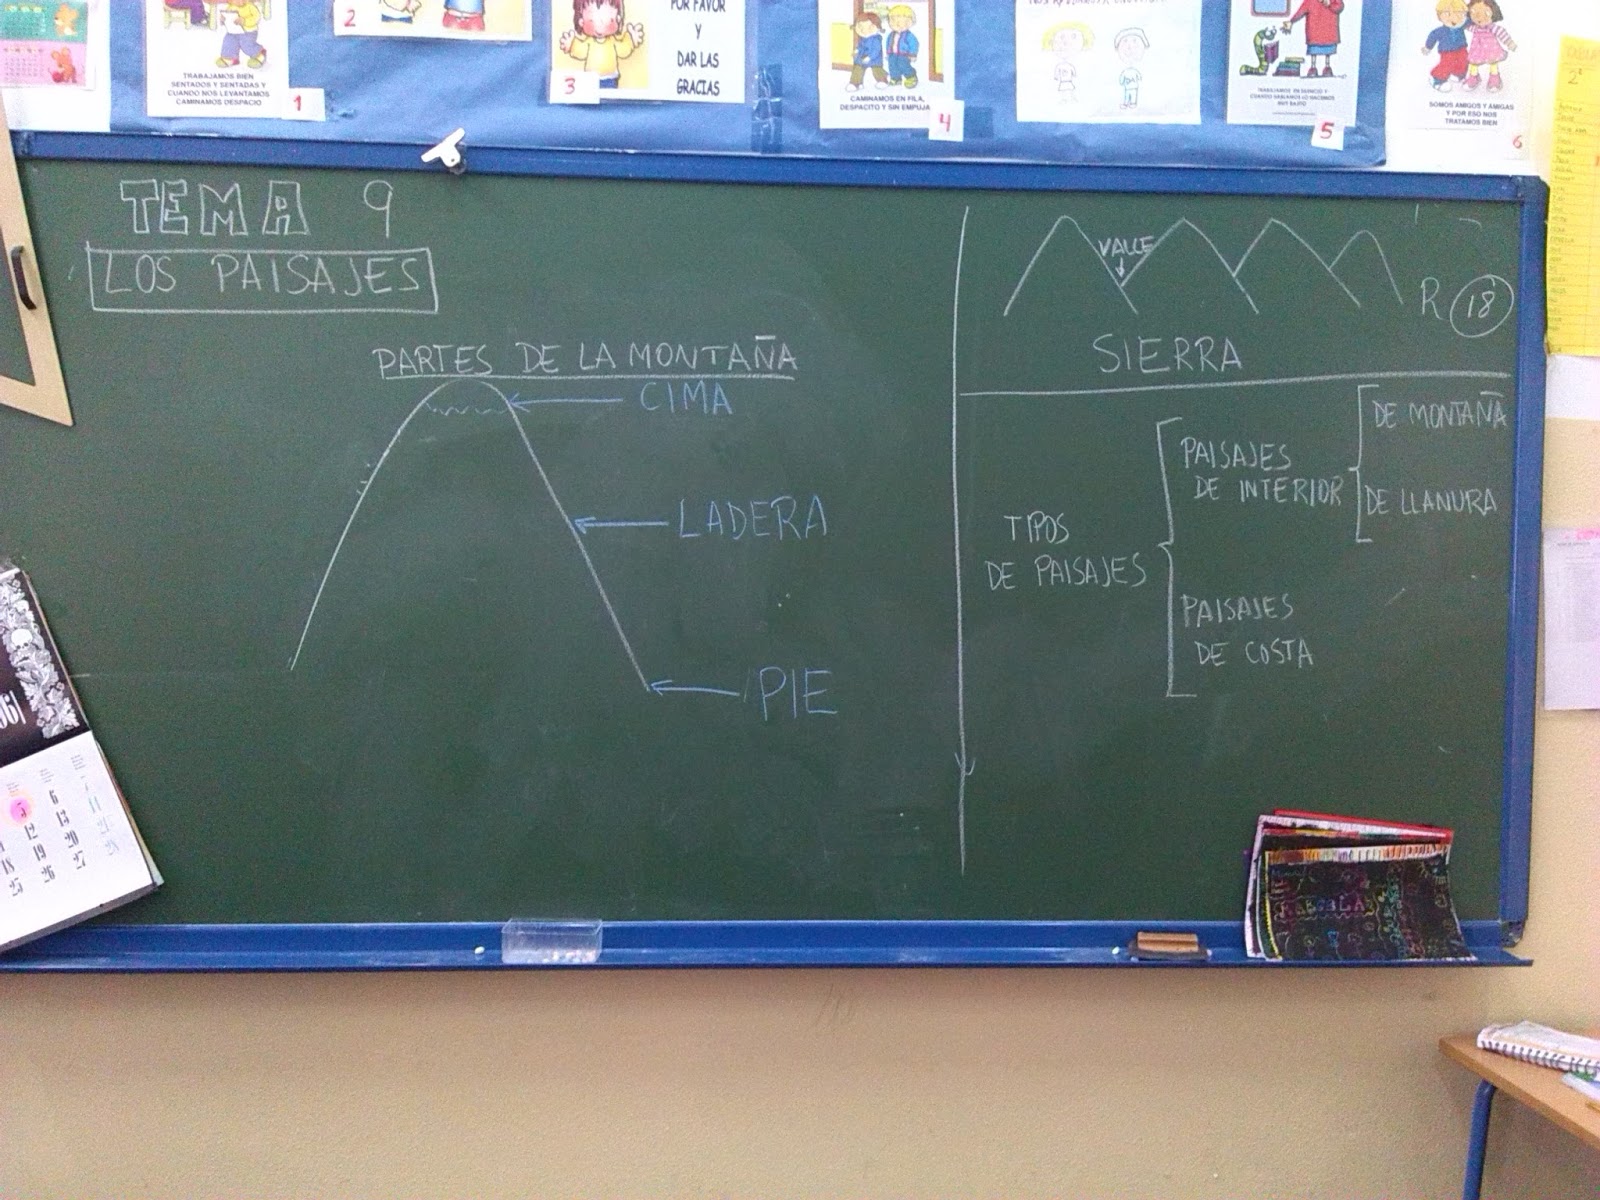 TRABAJAMOS BIEN
SENTADOS Y SENTADAS Y
CUANDO NOS LEVANTAMOS
CAMINAMOS DESPACIO
1
2
3
POR FAVOR
Y
DAR LAS
GRACIAS
CAMINAMOS EN FILA,
DESPACITO Y SIN EMPUJA
4
5
SOMOS AMIGOS Y AMIGAS
Y POR ESO NOS
TRATAMOS BIEN
6
TEMA 9
LOS PAISAJES
PARTES DE LA MONTAÑA
CIMA
LADERA
PIE
VALLE
R 18
SIERRA
TIPOS
DE PAISAJES
PAISAJES
DE INTERIOR
DE MONTAÑA
DE LLANURA
PAISAJES
DE COSTA